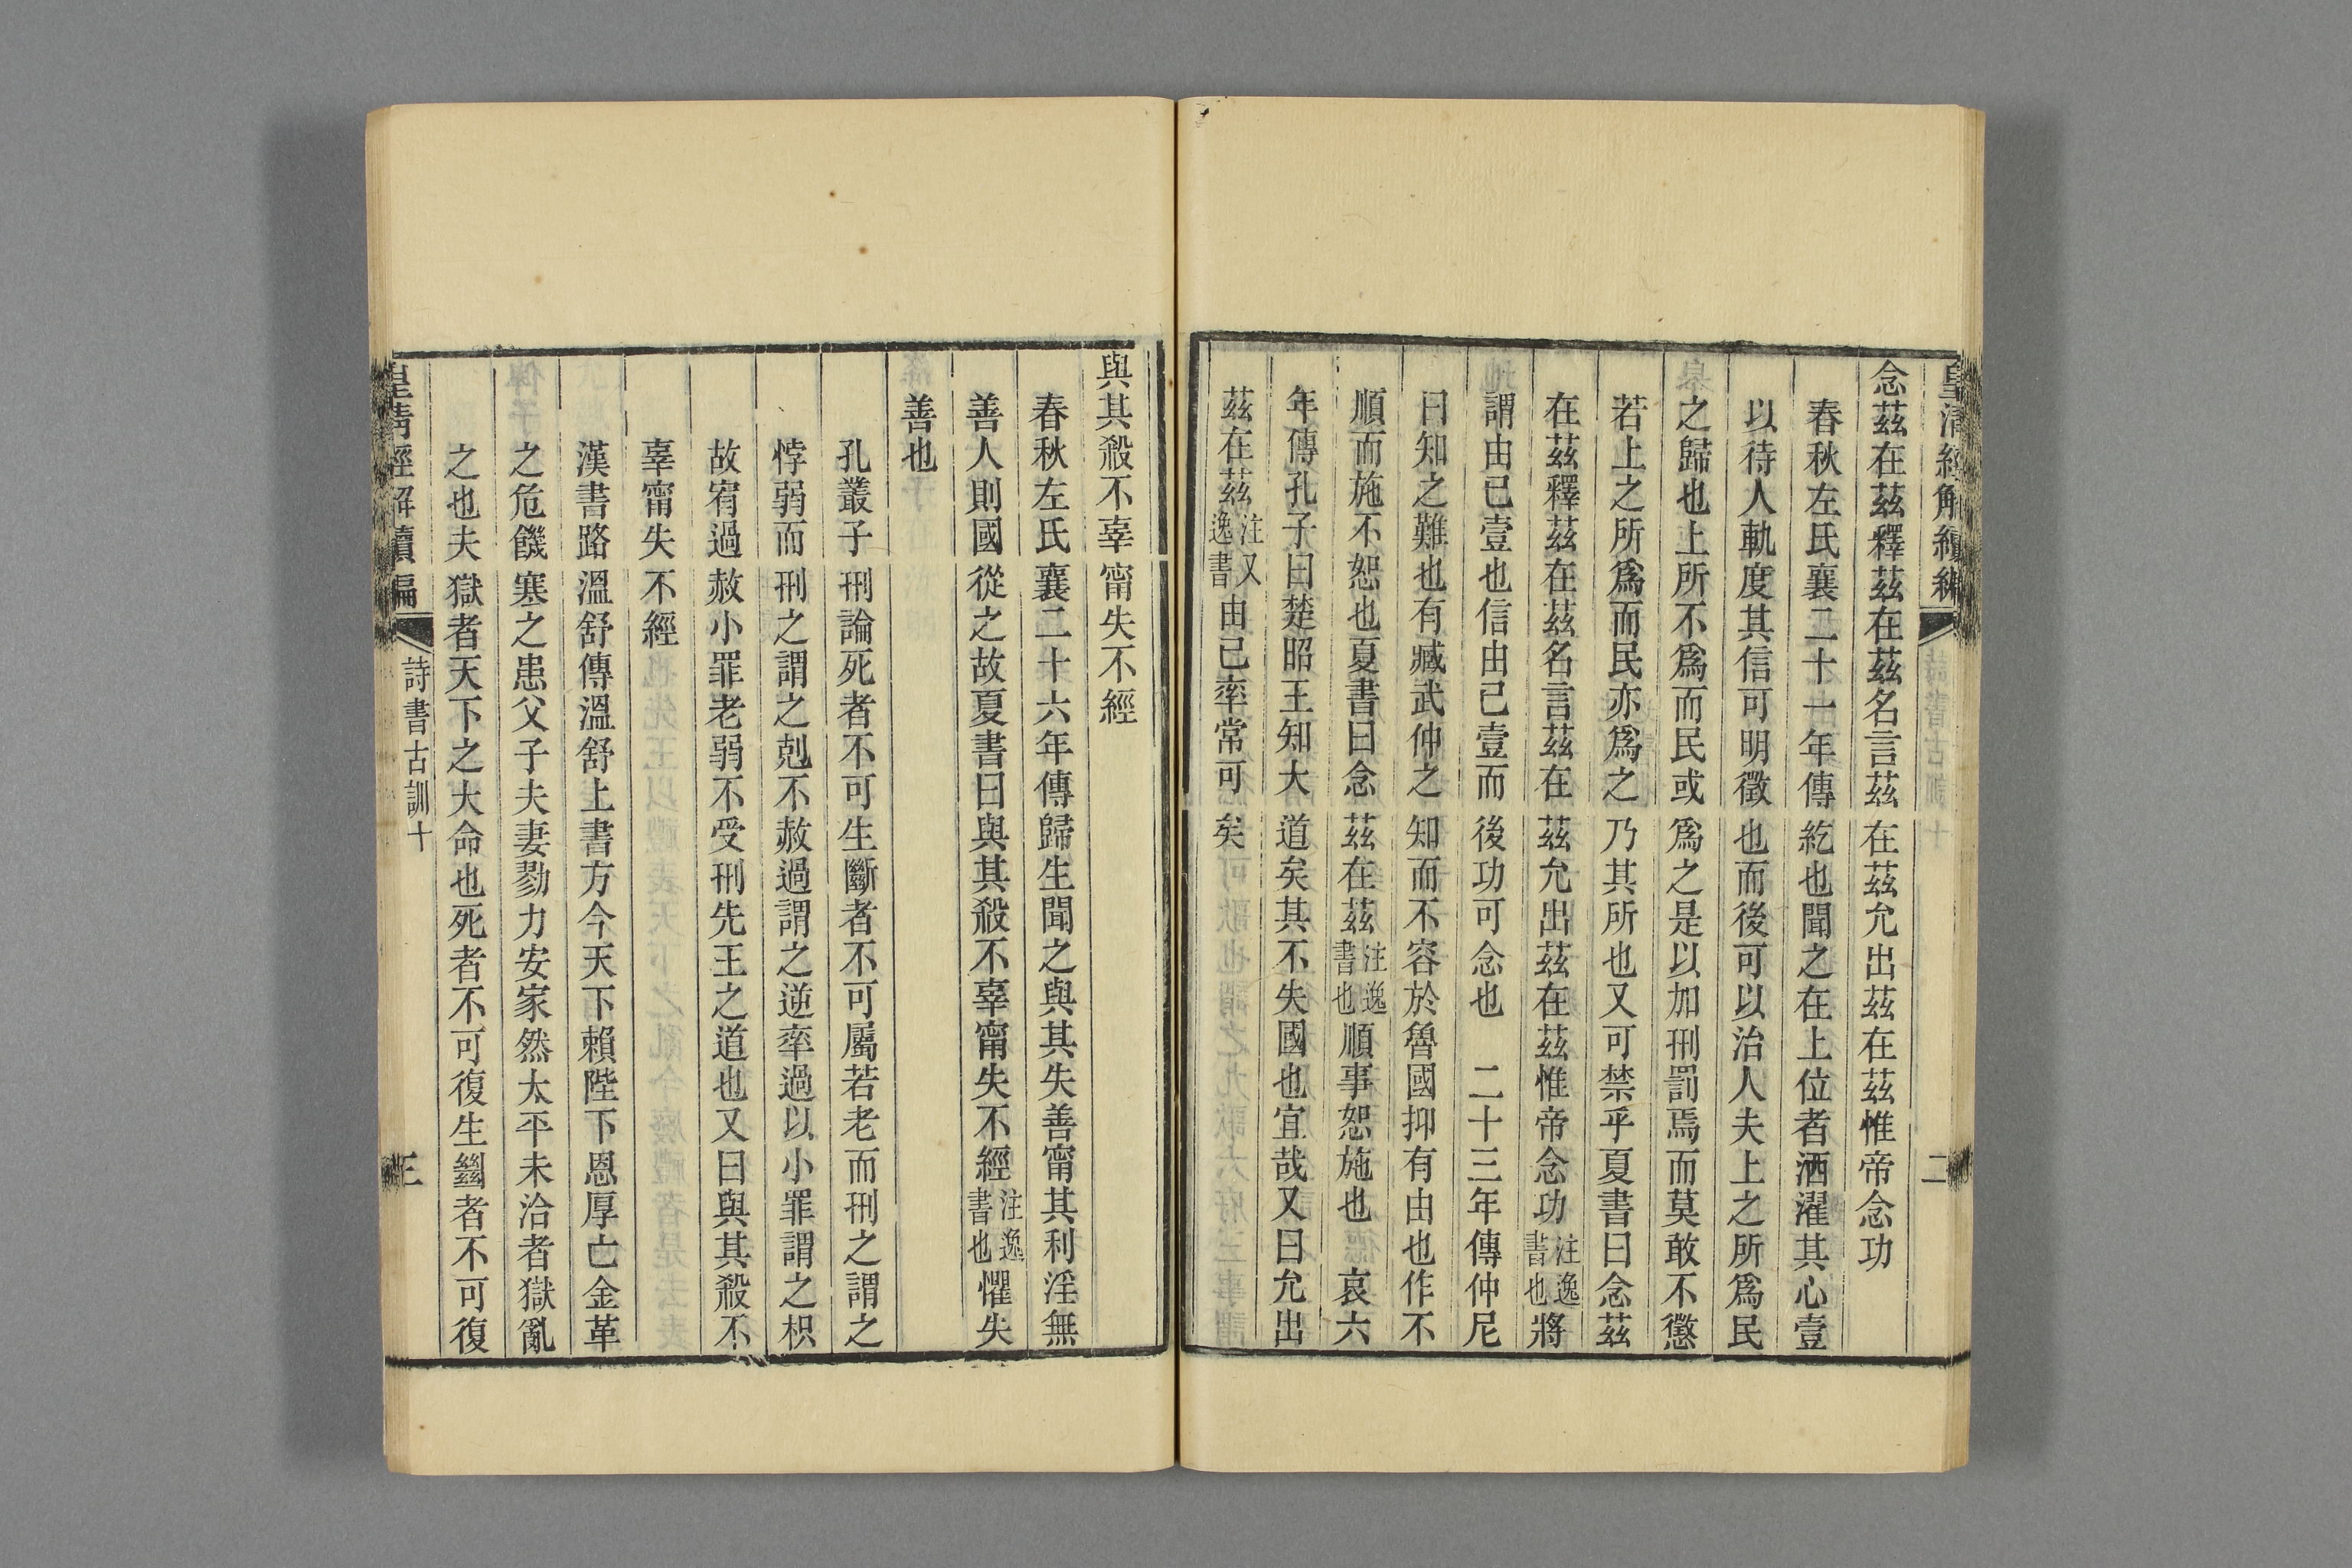 皇清經解續編
二
念茲在茲釋茲在茲名言茲在茲允出茲在茲惟帝念功
春秋左氏襄二十一年傳紇也聞之在上位者洒濯其心壹
以待人軌度其信可明徵也而後可以治人夫上之所爲民
之歸也上所不爲而民或爲之是以加刑罰焉而莫敢不懲
若上之所爲而民亦爲之乃其所也又可禁乎夏書曰念茲
在茲釋茲在茲名言茲在茲允出茲在茲惟帝念功注逸書也將
謂由已壹也信由己壹而後功可念也 二十三年傳仲尼
曰知之難也有臧武仲之知而不容於魯國抑有由也作不
順而施不恕也夏書曰念茲在茲注逸書也順事恕施也 哀六
年傳孔子曰楚昭王知大道矣其不失國也宜哉又曰允出
茲在茲注又逸書由已率常可矣
與其殺不辜甯失不經
春秋左氏襄二十六年傳歸生聞之與其失善甯其利淫無
善人則國從之故夏書曰與其殺不辜甯失不經注逸書也懼失
善也
孔叢子刑論死者不可生斷者不可屬若老而刑之謂之
悖弱而刑之謂之剋不赦過謂之逆率過以小罪謂之枳
故宥過赦小罪老弱不受刑先王之道也又曰與其殺不
辜甯失不經
漢書路溫舒傳溫舒上書方今天下賴陛下恩厚亡金革
之危饑寒之患父子夫妻勠力安家然太平未洽者獄亂
之也夫獄者天下之大命也死者不可復生㡭者不可復
皇清經解續編
詩書古訓十
三